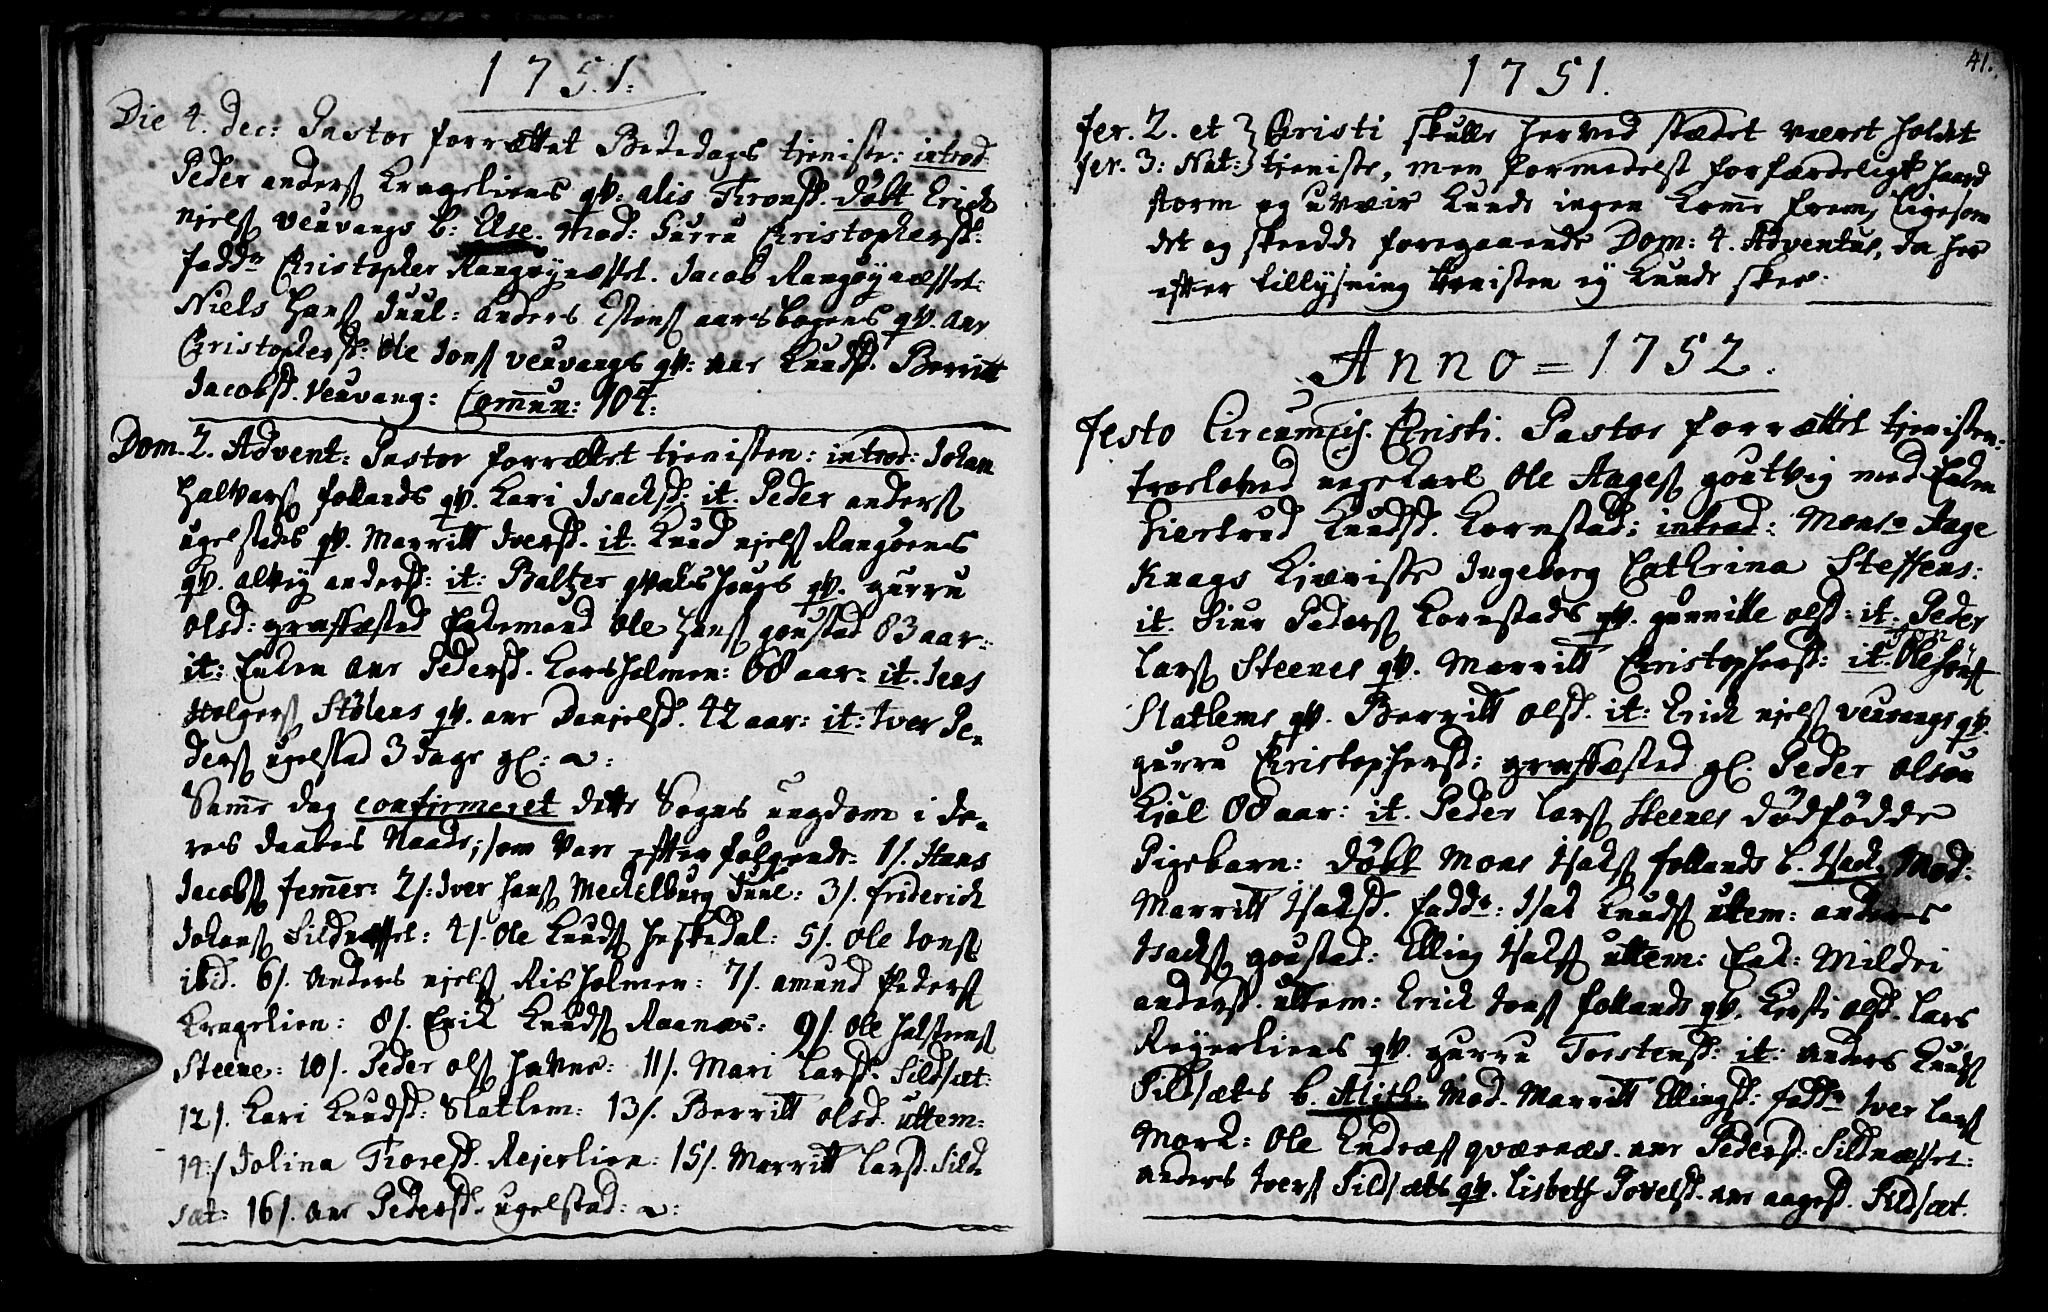 1751.
Die 4. Dec: Pastor forrættet Bededags tieniste: introd:
Peder anders Krageliens qv: alis Tronsd. døbt Erich
njels veuvangs b: Else. Mod: Gurru Christophersd:
fadd Christopher Rangøynæsset. Jacob Rangøynæsset:
Niels Hans Juul: anders Estens aarsbogens qv. ane
Christophersd: Ole Jons veuvangs qv: ane Knudsd. Berritt
Jacobsd. Veuvang: Commun: 104:
Dom. 2. Advent: Pastor forrettet tienisten: introd: Johan
Halvars follands qv. Kari Isachsd: it. Peder anders
ugelstads qv. Marritt Iversd. it. Knud njels Rangøens
qv. alvig andersd: it: Baltzer qvalshougs qv. gurru
olsd: graffæsted Enkemand Ole Hans goustad 83 aar:
it: Enken ane Pedersd. Korsholmen: 68 aar: it. Jens
Holgers Stølens qv. ane Danjelsd. 42 aar: it: Iver Pe-
ders ugelstad 3 dage gl:
Same dag confirmeret dette Sogns ungdom i de-
res daabes Naade; som vare efter følgende: 1/. Hans
Jacobs femer: 2/: Iver Hans Mechelburg Juul: 3/. friderich
Johans Sildnæsset: 4/. Ole Knuds Heskedal: 5/. Ole Jons
ibid. 6/. Anders njels Risholmen: 7/. amund Peders
Kragelien: 8/. Erik Knuds Raanæs: 9/. Ole Halstens
Steene: 10/. Peder ols Havne: 11/. Mari Larsd. Sildsæt:
12/. Kari Knudsd: Slatlem: 13/. Berritt olsd. uttem:
14:/ Jolina Toresd. Rejerlien: 15/. Marritt Larsd. Sild-
sæt: 16/. ane Pedersd. ugelstad:
41.
1751.
fer. 2. et } Christi skulle herved stædet været holdet
fer. 3: Nat: } tieniste, men formedelst forfærdeligt haard
storm og uvæir kunde ingen kome frem, ligesom
det og skedde foregaaende Dom: 4. Adventus, da her
efter tillysning tienisten ej kunde skee.
Anno = 1752.
festo Circumcis. Christi. Pastor forrættet tienisten:
troelofved ungekarl Ole Aages goutvig med Enken
Giertrud Knudsd. Kornstad: introd: Monsr Aage
Knags Kiæriste Ingeborg Cathrina Steffens:
it. Siur Peders Kornstads qv. gunnille olsd: it. Peder
Lars Steenes qv. Marritt Christophersd: it. Ole
Slatlems qv. Berritt olsd. it: Erich njels veuvangs qv.
gurru Christophersd: graffæsted gl. Peder olsøn
Kiøl 88 aar: it. Peder Lars Steenes dødfødde
Pigebarn: døbt Mons Isaks follands b. Isach. Mod:
Marritt Isaksd. fadd: Isak Knuds uttem: anders
Isachs goustad: Elling Isaks uttem: Enk: Mildri
andersd. uttem: Erich Jons follands qv. Kirsti olsd. Lars
Rejerliens qv. gurru Torstensd: it: anders Knuds
Sildsæts b. Alith: Mod. Marritt Ellingsd: fadd Iver Lars
Mork: Ole Endræs qværnæs. ane Pedersd. Sildnæsset:
anders Ivers Sildsæts qv. Lisbeth Povelsd. ane aagesd. Sildsæt.